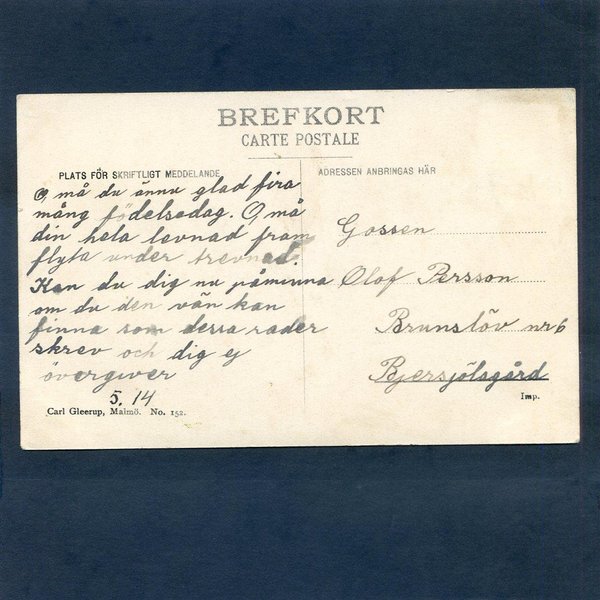 BREFKORT
CARTE POSTALE
PLATS FÖR SKRIFTLIGT MEDDELANDE
O, må du ännu glad fira
mång födelsedag. O, må
din hela levnad fram
flyta under trevnad.
Kan du dig nu påminna
om du den vän kan
finna som dessa rader
skrev och dig ej
övergiver
5. 14
Carl Gleerup, Malmö. No. 152.
ADRESSEN ANBRINGAS HÄR
Gossen
Olof Persson
Brunslöv nr 6
Bjersjölagård
Imp.